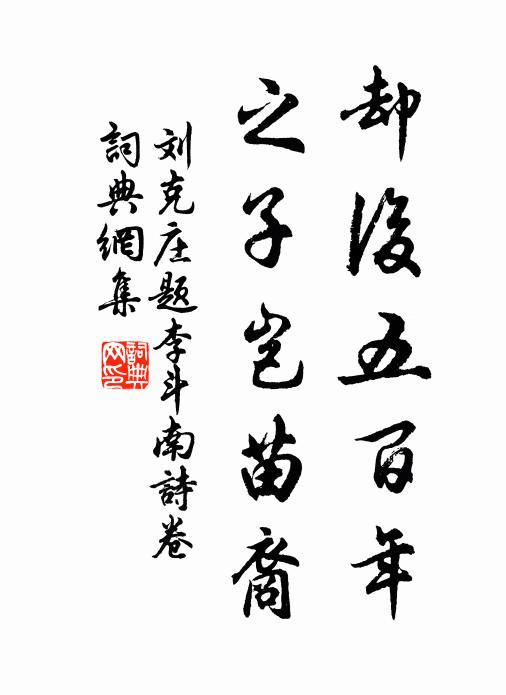 却後五百年
之子岂苗裔
刘克庄题李斗南詩卷
詞典網集
詞典网印